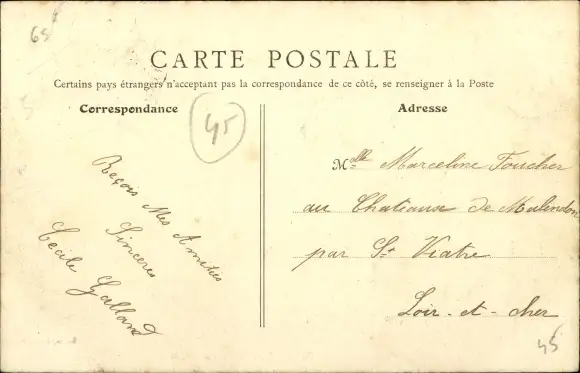 65
CARTE POSTALE
Certains pays étrangers n'acceptant pas la correspondance de ce côté, se renseigner à la Poste
Correspondance
45
Reçois Mes Amitiés
Sincères
Cecile Galland
Adresse
Melle Marceline Foucher
au Chateaux de Malindon
par St Viatre
Loir-et-cher
45